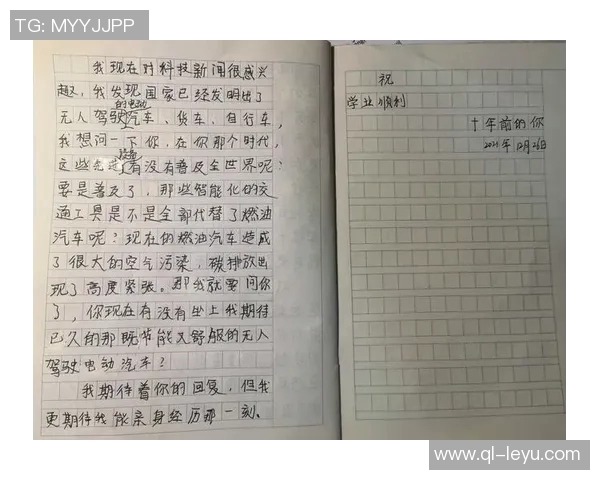 TG: MYYJJPP
我现在对科技新闻很感兴
趣，我发现国家已经发明出了
的电动
无人驾驶汽车、货车、自行车，
我想问一下你，在你那个时代，
设备
这些有没有普及全世界呢？
要是普及了，那些智能化的交
通工具是不是全部代替了燃油
汽车呢？现在的燃油汽车造成
了很大的空气污染，碳排放出
现了高度紧张。那我就要问你
了，你现在有没有坐上我期待
已久的那既节能又舒服的无人
驾驶电动汽车？
我期待着你的回复，但我
更期待我能亲身经历那一刻。
祝
学业顺利
十年前的你
2021年12月26日
www.ql-leyu.com